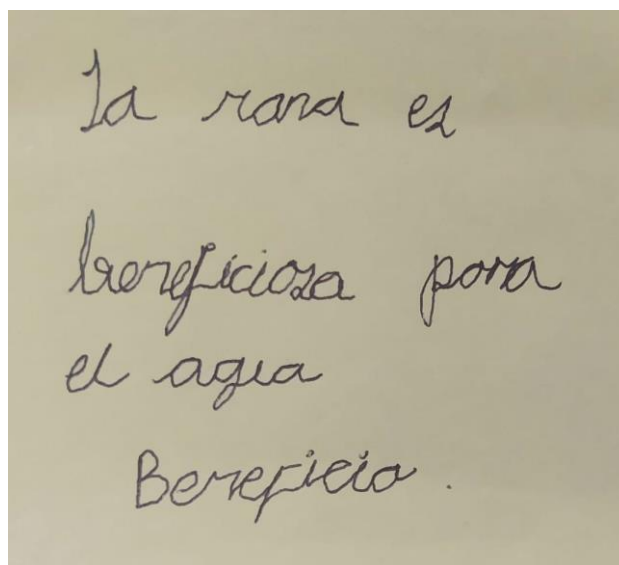 La rana es
beneficiosa para
el agua
Beneficio.